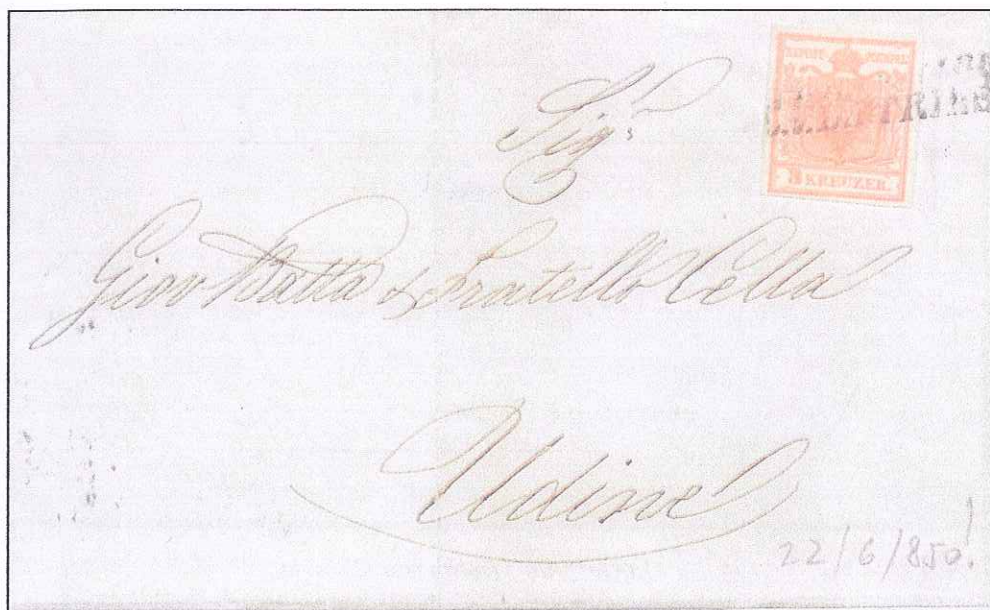 Sig.s
Giov Batta & Fratello Cella
Udine
KREUZER.
22/6/850!